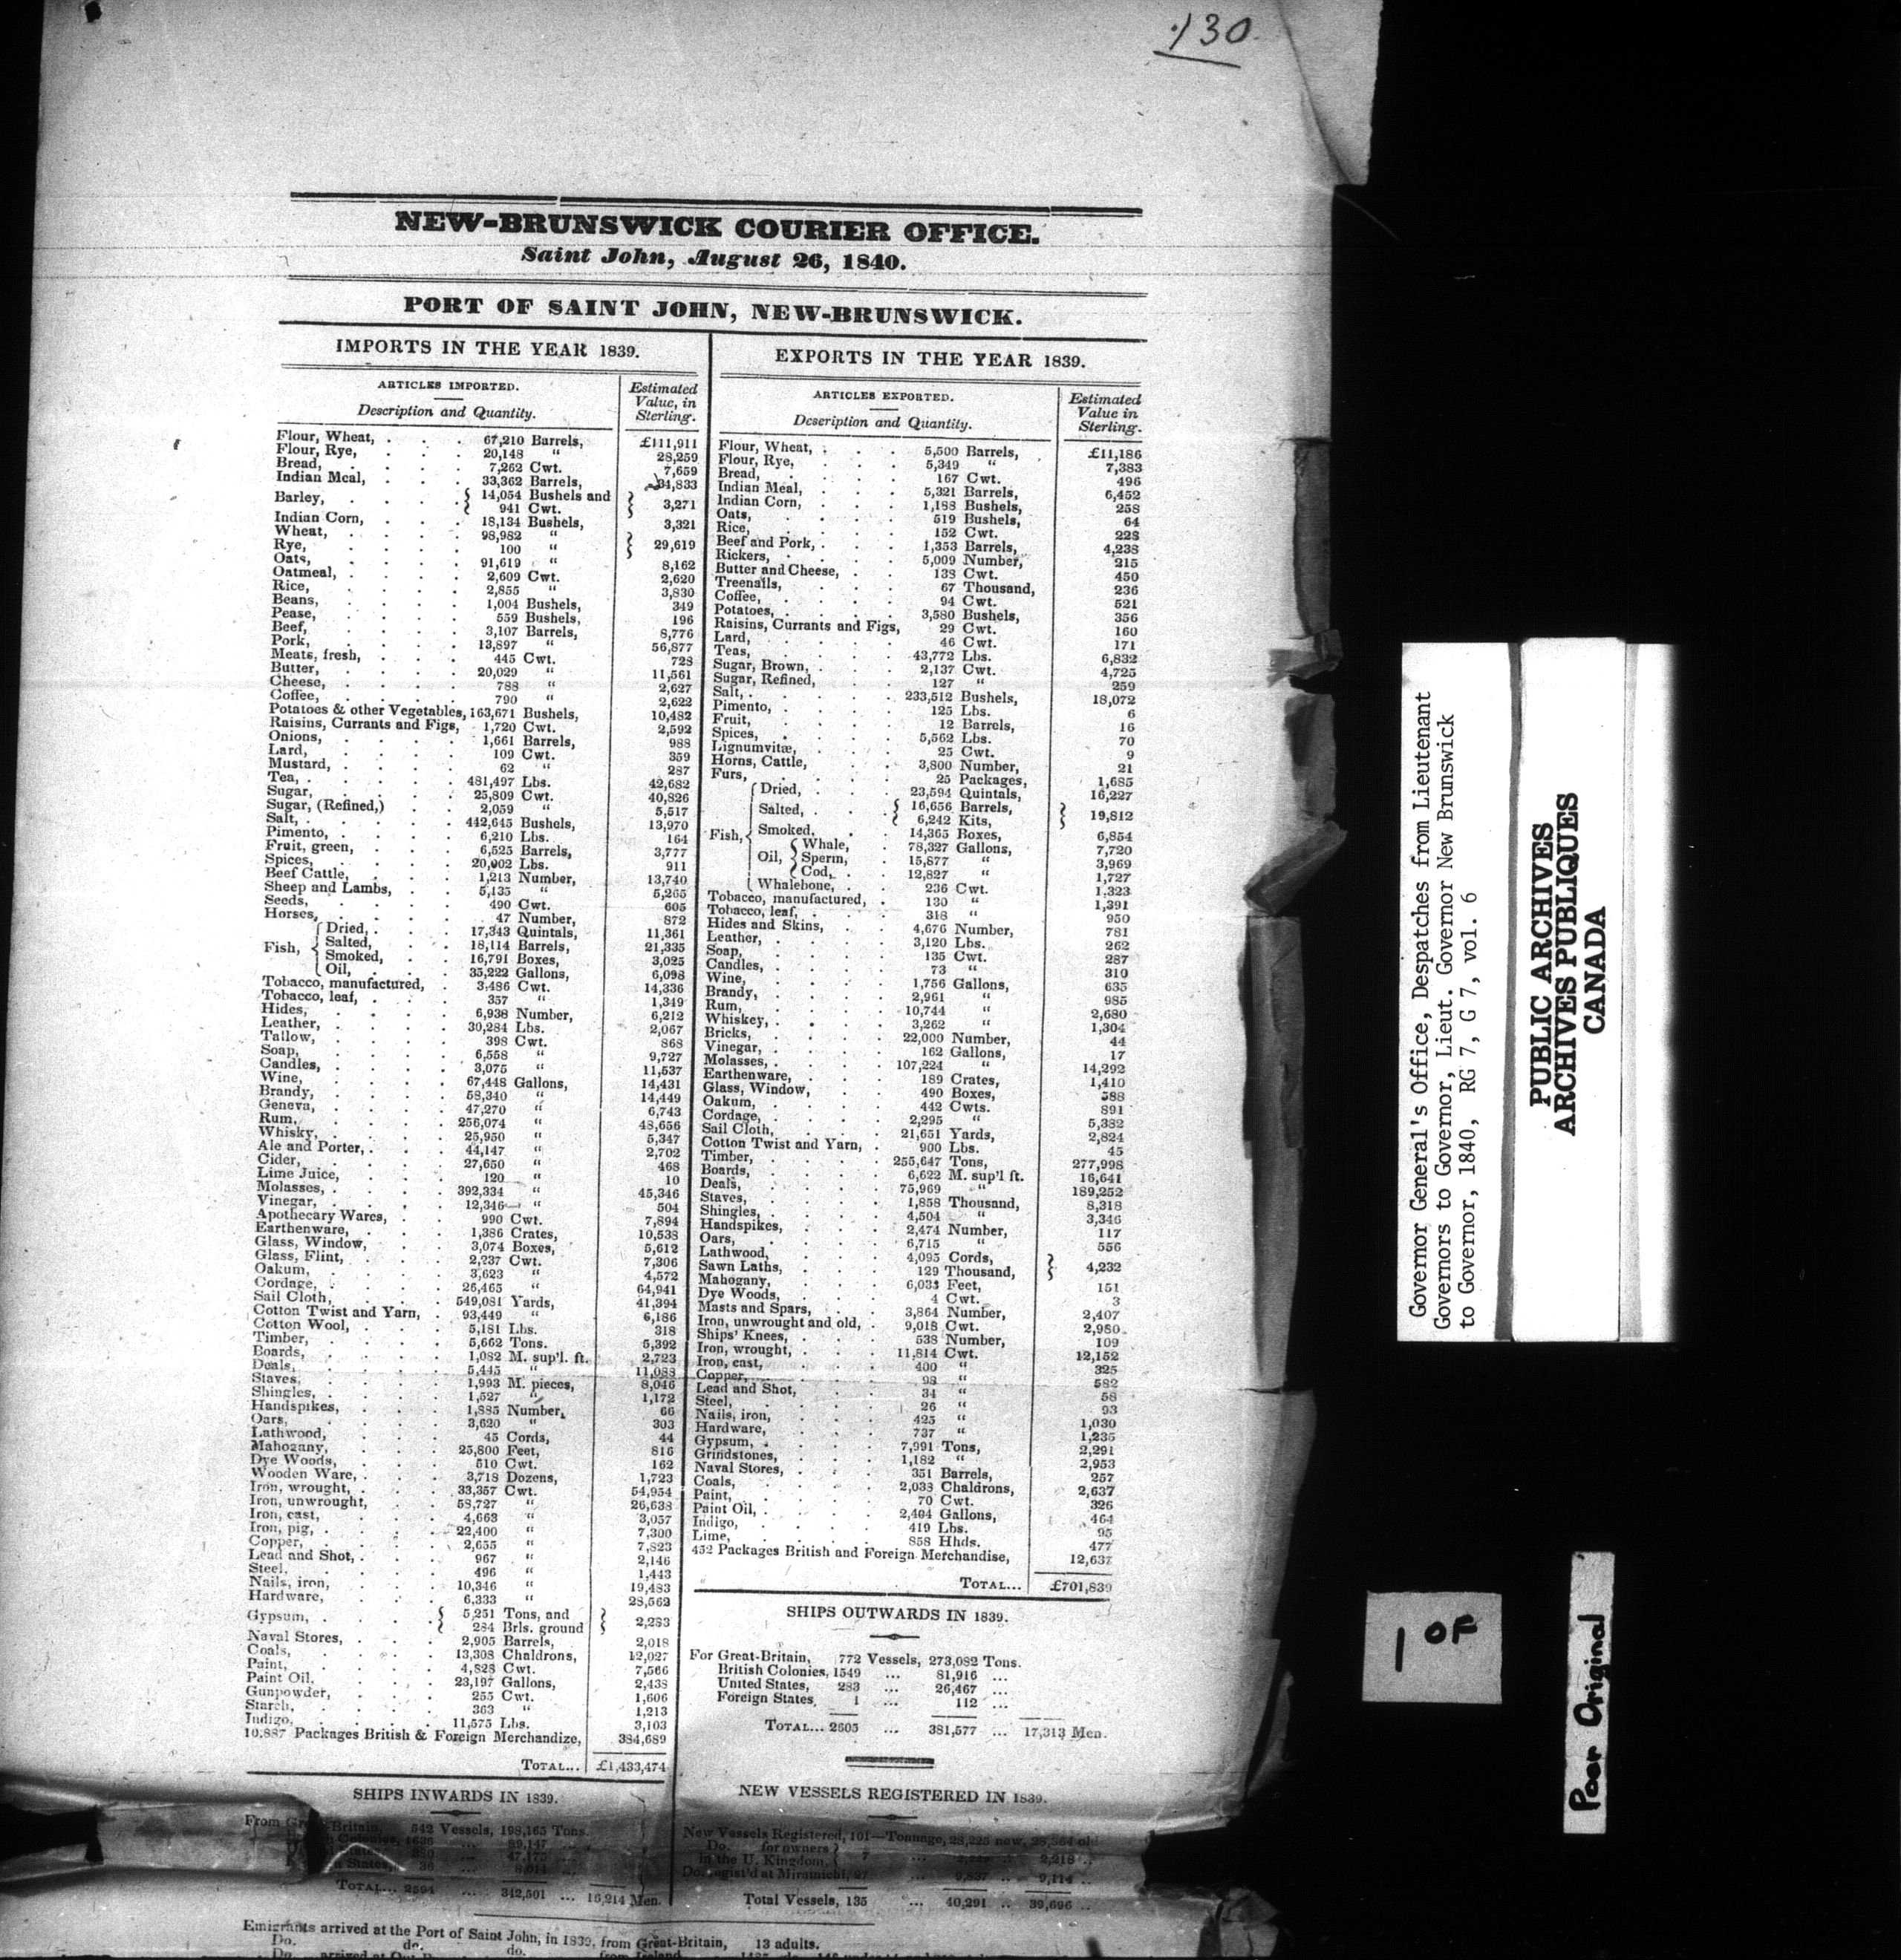 130
NEW-BRUNSWICK COURIER OFFICE.
Saint John, August 26, 1840.
PORT OF SAINT JOHN, NEW-BRUNSWICK.
IMPORTS IN THE YEAR 1839.
ARTICLES IMPORTED.
Description and Quantity.
Estimated Value, in Sterling.
Flour, Wheat, . . . 67,210 Barrels, £111,911
Flour, Rye, . . . 20,148 " 28,259
Bread, . . . 7,262 Cwt. 7,659
Indian Meal, . . . 33,362 Barrels, 34,833
Barley, . . . { 14,054 Bushels and
941 Cwt. } 3,271
Indian Corn, . . . 18,134 Bushels, 3,321
Wheat, . . . 98,982 "
Rye, . . . 100 " } 29,619
Oats, . . . 91,619 " 8,162
Oatmeal, . . . 2,609 Cwt. 2,620
Rice, . . . 2,855 " 3,830
Beans, . . . 1,004 Bushels, 349
Pease, . . . 559 Bushels, 196
Beef, . . . 3,107 Barrels, 8,776
Pork, . . . 13,897 " 56,877
Meats, fresh, . . . 445 Cwt. 728
Butter, . . . 20,029 " 11,561
Cheese, . . . 788 " 2,627
Coffee, . . . 790 " 2,622
Potatoes & other Vegetables, 163,671 Bushels, 10,482
Raisins, Currants and Figs, 1,720 Cwt. 2,592
Onions, . . . 1,661 Barrels, 988
Lard, . . . 109 Cwt. 359
Mustard, . . . 62 " 287
Tea, . . . 481,497 Lbs. 42,682
Sugar, . . . 25,809 Cwt. 40,826
Sugar, (Refined,) . . 2,059 " 5,517
Salt, . . . 442,645 Bushels, 13,970
Pimento, . . . 6,210 Lbs. 164
Fruit, green, . . . 6,525 Barrels, 3,777
Spices, . . . 20,002 Lbs. 911
Beef Cattle, . . . 1,213 Number, 13,740
Sheep and Lambs, . . 5,135 " 5,265
Seeds, . . . 490 Cwt. 605
Horses, . . . 47 Number, 872
Fish, { Dried, . . 17,343 Quintals, 11,361
Salted, . . 18,114 Barrels, 21,335
Smoked, . . 16,791 Boxes, 3,025
Oil, . . 35,222 Gallons, 6,098
Tobacco, manufactured, . 3,486 Cwt. 14,336
Tobacco, leaf, . . 357 " 1,349
Hides, . . . 6,938 Number, 6,212
Leather, . . . 30,284 Lbs. 2,067
Tallow, . . . 398 Cwt. 868
Soap, . . . 6,558 " 9,727
Candles, . . . 3,075 " 11,537
Wine, . . . 67,448 Gallons, 14,431
Brandy, . . . 58,340 " 14,449
Geneva, . . . 47,270 " 6,743
Rum, . . . 256,074 " 48,656
Whisky, . . . 25,950 " 5,347
Ale and Porter, . . . 44,147 " 2,702
Cider, . . . 27,650 " 468
Lime Juice, . . . 120 " 10
Molasses, . . . 392,334 " 45,346
Vinegar, . . . 12,346 " 504
Apothecary Wares, . . 990 Cwt. 7,894
Earthenware, . . . 1,386 Crates, 10,538
Glass, Window, . . 3,074 Boxes, 5,612
Glass, Flint, . . . 2,237 Cwt. 7,306
Oakum, . . . 3,623 " 4,572
Cordage, . . . 26,465 " 64,941
Sail Cloth, . . . 549,081 Yards, 41,394
Cotton Twist and Yarn, . 93,449 " 6,186
Cotton Wool, . . . 5,181 Lbs. 318
Timber, . . . 5,662 Tons. 5,392
Boards, . . . 1,082 M. sup'l. ft. 2,723
Deals, . . . 5,445 " 11,088
Staves, . . . 1,993 M. pieces, 8,046
Shingles, . . . 1,527 " 1,172
Handspikes, . . . 1,885 Number, 66
Oars, . . . 3,620 " 303
Lathwood, . . . 45 Cords, 44
Mahogany, . . . 25,800 Feet, 816
Dye Woods, . . . 510 Cwt. 162
Wooden Ware, . . . 3,718 Dozens, 1,723
Iron, wrought, . . . 33,357 Cwt. 54,954
Iron, unwrought, . . 58,727 " 26,638
Iron, cast, . . . 4,663 " 3,057
Iron, pig, . . . 22,400 " 7,300
Copper, . . . 2,655 " 7,823
Lead and Shot, . . . 967 " 2,146
Steel, . . . 496 " 1,443
Nails, iron, . . . 10,346 " 19,483
Hardware, . . . 6,333 " 28,562
Gypsum, . . . { 5,251 Tons, and
284 Brls. ground } 2,283
Naval Stores, . . . 2,905 Barrels, 2,018
Coals, . . . 13,308 Chaldrons, 12,027
Paint, . . . 4,828 Cwt. 7,566
Paint Oil, . . . 23,197 Gallons, 2,438
Gunpowder, . . . 255 Cwt. 1,606
Starch, . . . 363 " 1,213
Indigo, . . . 11,575 Lbs. 3,103
10,887 Packages British & Foreign Merchandize, 384,689
TOTAL... £1,433,474
SHIPS INWARDS IN 1839.
From Great-Britain, 542 Vessels, 198,165 Tons.
Colonies, 1636 ... 89,147 ...
380 ... 47,175 ...
States, 36 ... 8,014 ...
TOTAL... 2594 ... 342,501 ... 15,214 Men.
EXPORTS IN THE YEAR 1839.
ARTICLES EXPORTED.
Description and Quantity.
Estimated Value in Sterling.
Flour, Wheat, . . . 5,500 Barrels, £11,186
Flour, Rye, . . . 5,349 " 7,383
Bread, . . . 167 Cwt. 496
Indian Meal, . . . 5,321 Barrels, 6,452
Indian Corn, . . . 1,188 Bushels, 258
Oats, . . . 519 Bushels, 64
Rice, . . . 152 Cwt. 228
Beef and Pork, . . . 1,353 Barrels, 4,238
Rickers, . . . 5,009 Number, 215
Butter and Cheese, . . 138 Cwt. 450
Treenails, . . . 67 Thousand, 236
Coffee, . . . 94 Cwt. 521
Potatoes, . . . 3,580 Bushels, 356
Raisins, Currants and Figs, 29 Cwt. 160
Lard, . . . 46 Cwt. 171
Teas, . . . 43,772 Lbs. 6,832
Sugar, Brown, . . . 2,137 Cwt. 4,725
Sugar, Refined, . . 127 " 259
Salt, . . . 233,512 Bushels, 18,072
Pimento, . . . 125 Lbs. 6
Fruit, . . . 12 Barrels, 16
Spices, . . . 5,562 Lbs. 70
Lignumvitæ, . . . 25 Cwt. 9
Horns, Cattle, . . . 3,800 Number, 21
Furs, . . . 25 Packages, 1,685
Fish, { Dried, . . 23,594 Quintals, 16,227
Salted, . . { 16,656 Barrels,
6,242 Kits, } 19,812
Smoked, . . 14,365 Boxes, 6,854
Oil, { Whale, . 78,327 Gallons, 7,720
Sperm, . 15,877 " 3,969
Cod, . 12,827 " 1,727
Whalebone, . . 236 Cwt. 1,323
Tobacco, manufactured, . 130 " 1,391
Tobacco, leaf, . . . 318 " 950
Hides and Skins, . . 4,676 Number, 781
Leather, . . . 3,120 Lbs. 262
Soap, . . . 135 Cwt. 287
Candles, . . . 73 " 310
Wine, . . . 1,756 Gallons, 635
Brandy, . . . 2,961 " 985
Rum, . . . 10,744 " 2,680
Whiskey, . . . 3,262 " 1,304
Bricks, . . . 22,000 Number, 44
Vinegar, . . . 162 Gallons, 17
Molasses, . . . 107,224 " 14,292
Earthenware, . . . 189 Crates, 1,410
Glass, Window, . . 490 Boxes, 588
Oakum, . . . 442 Cwts. 891
Cordage, . . . 2,295 " 5,382
Sail Cloth, . . . 21,651 Yards, 2,824
Cotton Twist and Yarn, . 900 Lbs. 45
Timber, . . . 255,647 Tons, 277,998
Boards, . . . 6,622 M. sup'l ft. 16,641
Deals, . . . 75,969 " 189,252
Staves, . . . 1,858 Thousand, 8,318
Shingles, . . . 4,504 " 3,346
Handspikes, . . . 2,474 Number, 117
Oars, . . . 6,715 " 556
Lathwood, . . . 4,095 Cords,
Sawn Laths, . . . 129 Thousand, } 4,232
Mahogany, . . . 6,033 Feet, 151
Dye Woods, . . . 4 Cwt. 3
Masts and Spars, . . 3,864 Number, 2,407
Iron, unwrought and old, . 9,018 Cwt. 2,980
Ships' Knees, . . . 538 Number, 109
Iron, wrought, . . . 11,814 Cwt. 12,152
Iron, cast, . . . 400 " 325
Copper, . . . 98 " 582
Lead and Shot, . . . 34 " 58
Steel, . . . 26 " 93
Nails, iron, . . . 425 " 1,030
Hardware, . . . 737 " 1,235
Gypsum, . . . 7,991 Tons, 2,291
Grindstones, . . . 1,182 " 2,953
Naval Stores, . . . 351 Barrels, 257
Coals, . . . 2,033 Chaldrons, 2,637
Paint, . . . 70 Cwt. 326
Paint Oil, . . . 2,404 Gallons, 464
Indigo, . . . 419 Lbs. 95
Lime, . . . 858 Hhds. 477
452 Packages British and Foreign Merchandise, 12,637
TOTAL... £701,839
SHIPS OUTWARDS IN 1839.
For Great-Britain, 772 Vessels, 273,082 Tons.
British Colonies, 1549 ... 81,916 ...
United States, 283 ... 26,467 ...
Foreign States, 1 ... 112 ...
TOTAL... 2605 ... 381,577 ... 17,313 Men.
NEW VESSELS REGISTERED IN 1839.
New Vessels Registered, 101—Tonnage, 28,225 new, 28,364 ol
Do. for owners }
in the U. Kingdom, } 7 ... 2,218 ..
Do. regist'd at Miramichi, 27 ... 9,837 .. 9,114 ..
Total Vessels, 135 ... 40,291 .. 39,696 ..
Emigrants arrived at the Port of Saint John, in 1839, from Great-Britain, 13 adults.
Do. do. do. from Ireland
Governor General's Office, Despatches from Lieutenant
Governors to Governor, Lieut. Governor New Brunswick
to Governor, 1840, RG 7, G 7, vol. 6
PUBLIC ARCHIVES
ARCHIVES PUBLIQUES
CANADA
1 OF
Poor Original